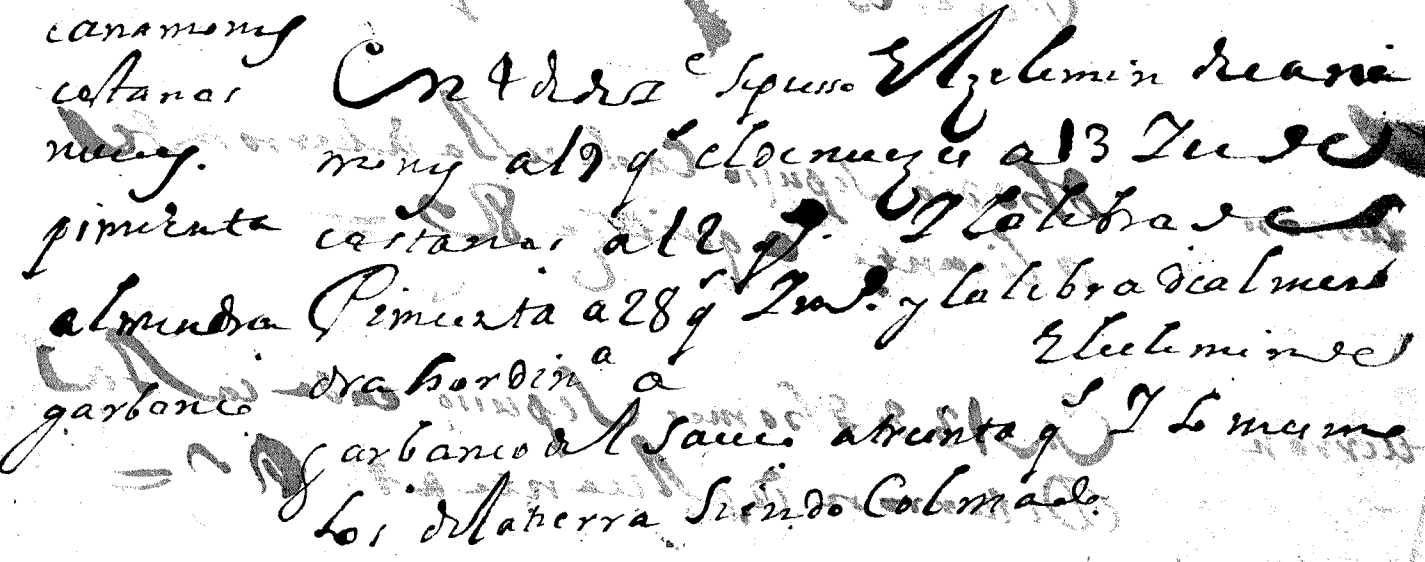 canamones
castanas
nueces.
pimienta
almendra
garbanco
En 4 de dize se pusso El zelemin de cana
mones a 19 qs el de nuezes a 13 I el de
castanas a 12 qs. I la libra de
Pimienta a 28 qs I md. y la libra de almen
dra hordina a
El celemin de
garbanco del sauco a treinta qs I lo mismo
los de la tierra siendo Colmado.